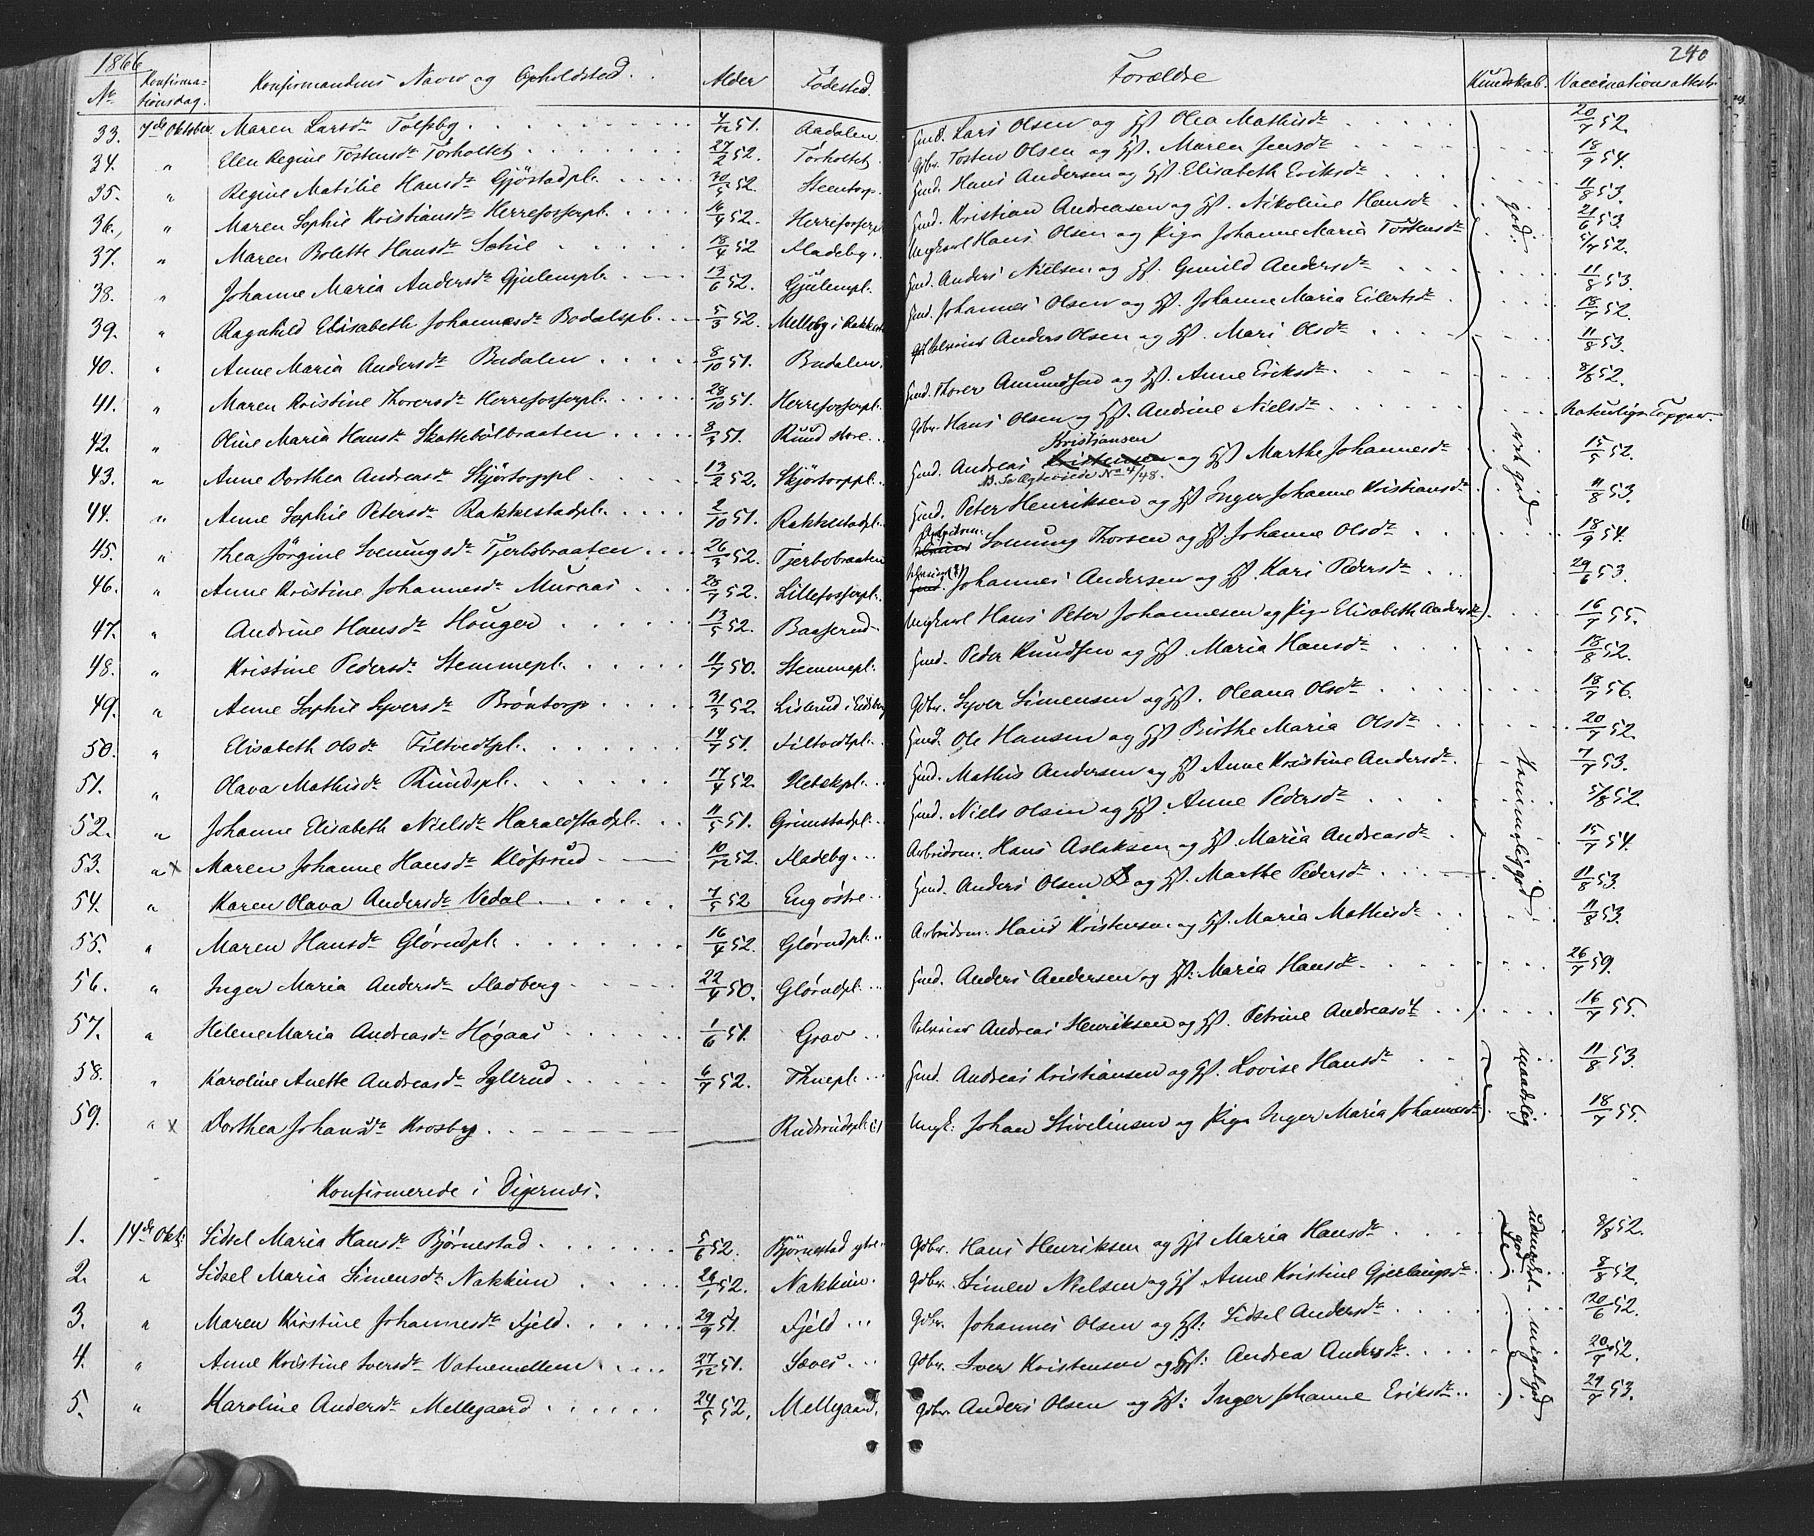 1866
240
No Konfirmationsdag. Konfirmandens Navn og Opholdsted. Alder Fødested. Forældre Kundskab. Vaccinationsattest.
33. 7de Oktober Maren Larsdr Tolfsby 4/12 51. Aadalen Gmd. Lars Olsen og Hst. Olea Mathisdr 20/7 52.
34. " Elen Regine Tostensdr Torholtet 27/2 52. Torholtet. Gbr. Tosten Olsen og Hst. Maren Jensdr 18/9 54.
35. " Regine Matilie Hansdr Gjøstadpl. 30/5 52. Steentorp. Gmd. Hans Andersen og Hst. Elisabeth Eriksdr 11/8 53.
36. " Maren Sophie Kristiansdr Herrefosserpl. 14/4 52. Herrefosserpl. Gmd. Kristian Andreasen og Hst. Nikoline Hansdr god. 21/6 53.
37. " Maren Bolette Hansdr 18/4 52 Fladeby. Ungkarl Hans Olsen og Pige Johanne Maria Tostensdr 5/7 52.
38. " Johanne Maria Andersdr Gjulempl. 13/6 52. Gjulempl. Gmd. Anders Nielsen og Hst. Gunild Andersdr 11/8 53.
39. " Ragnhild Elisabeth Johannesdr Bodalspl. 5/3 52. Melleby i Rakkest. Gmd. Johannes Olsen og Hst. Johanne Maria Eilertsdr 18/7 52.
40. " Anne Maria Andersdr Budalen 8/10 51. Budalen. Anders Olsen og Hst. Mari Olsdr 11/8 53.
41. " Maren Kristine Thorersdr Herrefosserpl. 28/10 51. Herrefosserpl. Gmd. Thorer Amundsen og Hst. Anne Eriksdr 8/8 52.
42. " Oline Maria Hansdr Skattebølbraaten 8/3 51. Ruud store Gbr. Hans Olsen og Hst. Andrine Nielsdr Naturlige Kopper
43. " Anne Dorthea Andreasdr Skjørtorppl 13/2 52. Skjørtorppl. Gmd. Andreas Kristensen Kristiansen og Hst Marthe Johannesdr meget god 15/5 52.
No 4/48.
44. " Anne Sophie Petersdr Rakkestadpl. 2/10 51. Rakkestadpl. Gmd. Peter Henriksen og Hst Inger Johanne Kristiansdr 11/8 53.
45. " Thea Jørgine Svenungsdr Tjerbobraaten 26/3 52. Tjerbobraaten Arbeidsm. Svenung Thorsen og Hst Johanne Olsdr 18/9 54.
46. " Anne Kristine Johannesdr Muraas 28/7 52. Lillefosserpl. Johannes Andersen og Hst. Kari Pedersdr 29/6 53.
47. " Andrine Hansdr Houger 13/5 52. Baaserud Ungkarl Hans Peter Johannesen og Pige Elisabeth Andersdr 16/7 55.
48. " Kristine Pedersdr Stemmepl. 11/7 50. Stemmepl. Gmd. Peder Knudsen og Hst. Maria Hansdr 18/8 52.
49. " Anne Sophie Syversdr Brøntorp 31/3 52. Lislerud i Eidsberg Gbr. Syver Simensen og Hst. Oleana Olsdr 18/7 56.
50. " Elisabeth Olsdr Filtvedtpl. 14/7 51. Filtvedtpl. Gmd. Ole Hansen og Hst Birthe Maria Olsdr 20/7 52.
51. " Olava Mathisdr Ruudspl. 17/4 52. Hetækpl. Gmd. Mathis Andersen og Hst Anne Kristine Andersdr temmelig god 7/7 53.
52. " Johanne Elisabeth Nielsdr Haraldstadpl. 11/5 51. Grimstadpl. Gmd. Niels Olsen og Hst. Anne Pedersdr 5/8 52.
53. " x Maren Johanne Hansdr Kløfsrud 10/12 52. Fladeby. Arbeidsm. Hans Aslaksen og Hst Maria Andreasdr 15/7 54.
54. " Karen Olava Andersdr Vedal 7/5 52 Eng østre Gmd. Anders Olsen og Hst. Marthe Pedersdr 11/8 53.
55. " Maren Hansdr Glørudpl. 16/4 52. Glørudpl. Arbeidsm. Hans Kristensen og Hst. Maria Mathisdr 11/8 53.
56. " Inger Maria Andersdr Fladberg 22/4 50. Glørudpl. Gmd. Anders Andersen og Hst. Maria Hansdr 26/7 59.
57. " Helene Maria Andreasdr Høgaas 1/6 51. Grav Andreas Henriksen og Hst. Petrine Andreasdr 16/7 55.
58. " Karoline Anette Andreasdr Iglerud 6/7 52. Thuepl. Gmd. Andreas Kristiansen og Hst. Lovise Hansdr maadelig 11/8 53.
59. " x Dorthea Johansdr Krosby Rudsrudspl. Ungk. Johan Stivelinsen og Pige Inger Maria Johannesdr 18/7 55.
Konfirmerede i Digernæs.
1. 14de Okt. Sidsel Maria Hansdr Bjørnestad 5/6 52. Bjørnestad ytre Gbr. Hans Henriksen og Hst Maria Hansdr udmærket god 8/8 52.
2. " Sidsel Maria Simensdr Nakkim 26/1 52. Nakkim. Gbr. Simen Nielsen og Hst Anne Kristine Gjerlaugsdr 8/8 52.
3. " Maren Kristine Johannesdr Fjeld 29/9 51. Fjeld Gbr. Johannes Olsen og Hst. Sidsel Andersdr 20/6 52.
4. " Anne Kristine Iversdr Vatnemellem 27/12 51. Sæves Gbr. Iver Kristensen og Hst. Andrea Andersdr meget god 20/7 52.
5. " Karoline Andersdr Mellegaard 24/5 52. Mellegaard. Gbr. Anders Olsen og Hst. Inger Johanne Eriksdr 29/7 53.